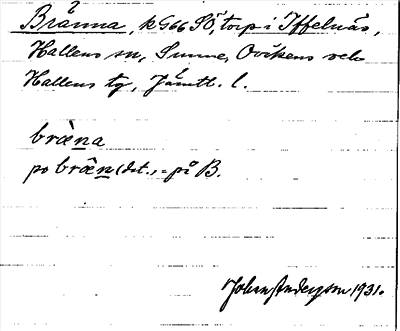 Brånna, k G66 SÖ, torp i Iffelnäs,
Hallens sn, Sunne, Ovikens o
Hallens tg, Jämtl. l.
bræ̀na
po bræ̂n (det.) = på B.
Johan Anderson 1931.